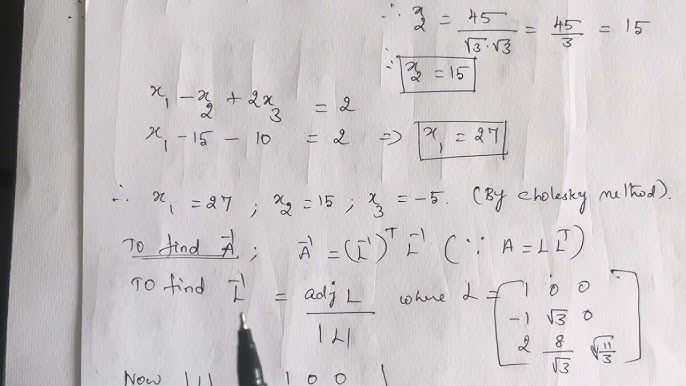 ∴ x₂ = 45/(√3·√3) = 45/3 = 15
∴ x₂ = 15
x₁ − x₂ + 2x₃ = 2
x₁ − 15 − 10 = 2 ⇒ x₁ = 27
∴ x₁ = 27 ; x₂ = 15 ; x₃ = −5. (By cholesky method).
To find A⁻¹ ; A⁻¹ = (L⁻¹)ᵀ L⁻¹ (∵ A = L Lᵀ)
To find L⁻¹ = adj L / |L| where L = [1 0 0
−1 √3 0
2 8/√3 √(11/3)]
Now |L| 1 0 0